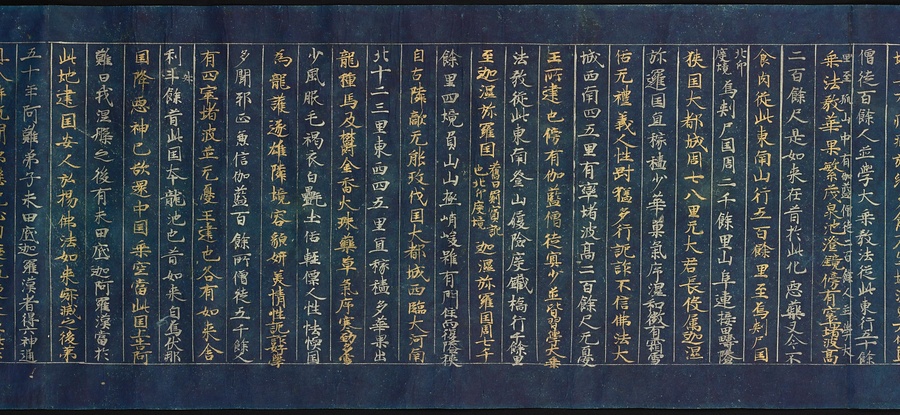 僧徒百餘人並學大乘教法從此東行三十餘
里至瓶山中有伽藍僧徒二百餘人並學大
乘法教華菓繁茂泉池澄鏡傍有窣堵波高
二百餘尺是如來在昔於此化惡藥叉令不
食肉從此東南山行五百餘里至烏剌尸国
北印度境
烏剌尸国周二千餘里山阜連接田疇隘
狹国大都城周七八里无大君長役屬迦濕
弥邏国宜稼穡少華菓氣序温和微有霜雪
俗无禮義人性剛猛多行詭詐不信佛法大
城西南四五里有窣堵波高二百餘尺无憂
王所建也傍有伽藍僧徒寡少並皆習學大乘
法教從此東南登山履險度鐵橋行千餘里
至迦濕弥羅国
舊曰罽賓訛也北印度境
迦濕弥羅国周七千
餘里四境負山山極峭峻雖有門徑而復隘狹
自古隣敵无能攻伐国大都城西臨大河南
北十二三里東西四五里宜稼穡多華菓出
龍種馬及欝金香火珠藥草氣序寒勁多雪
少風服毛褐衣白㲲土俗輕僄人性怯愞国
為龍護遂雄隣境容貌妍美情性詭詐好學
多聞邪正兼信伽藍百餘所僧徒五千餘人
有四窣堵波並无憂王建也各有如來舍
利斗餘昔此国本龍池也昔如來自烏仗那
国降惡神已欲還中国乗空當此国上告阿
難曰我涅槃之後有末田底迦阿羅漢當於
此地建国安人弘揚佛法如來寂滅之後第
五十年阿難弟子末田底迦羅漢者得神通